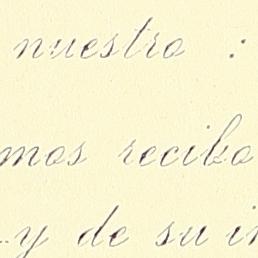 nuestro :
mos recibo
y de su in